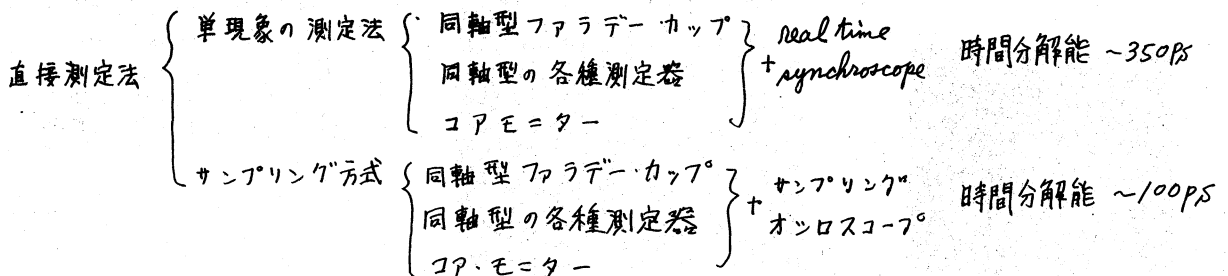 直接測定法
単現象の測定法
同軸型ファラデー・カップ
同軸型の各種測定器
コアモニター
+ real time synchroscope
時間分解能 ~350ps
サンプリング方式
同軸型ファラデー・カップ
同軸型の各種測定器
コア・モニター
+ サンプリング
オシロスコープ
時間分解能 ~100ps